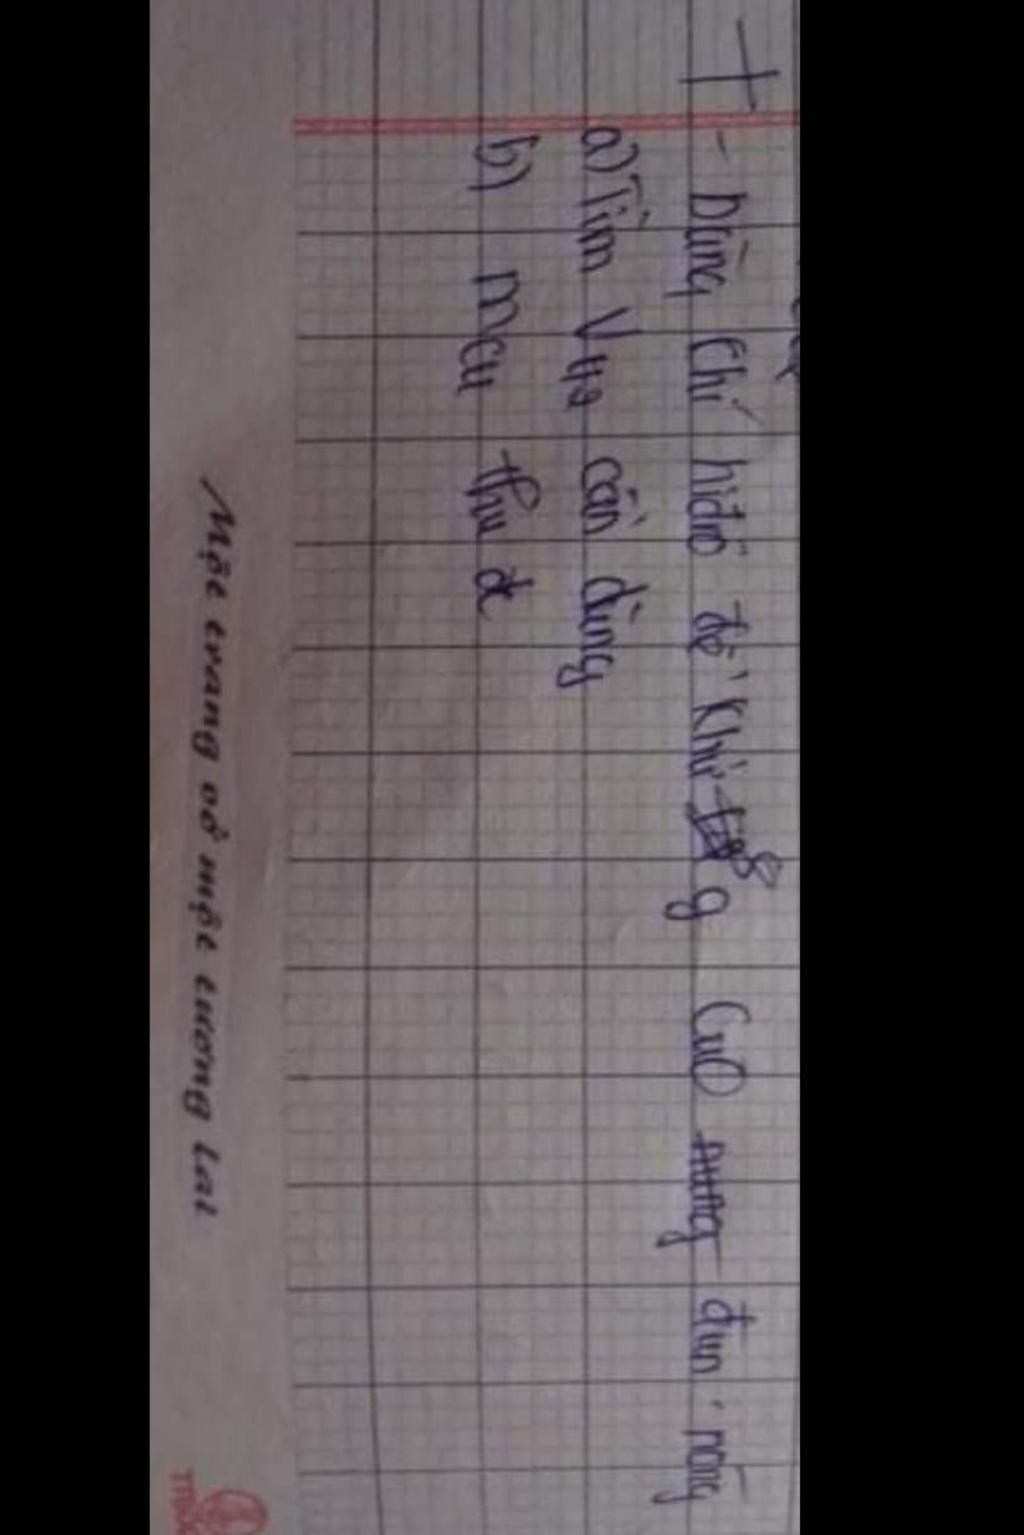 - Dùng Chí hiđrô để Khử 8 g CuO nung đun nóng
a) Tìm VH2 cần dùng
b) mCu thu đc
Một trang vở một tương lai